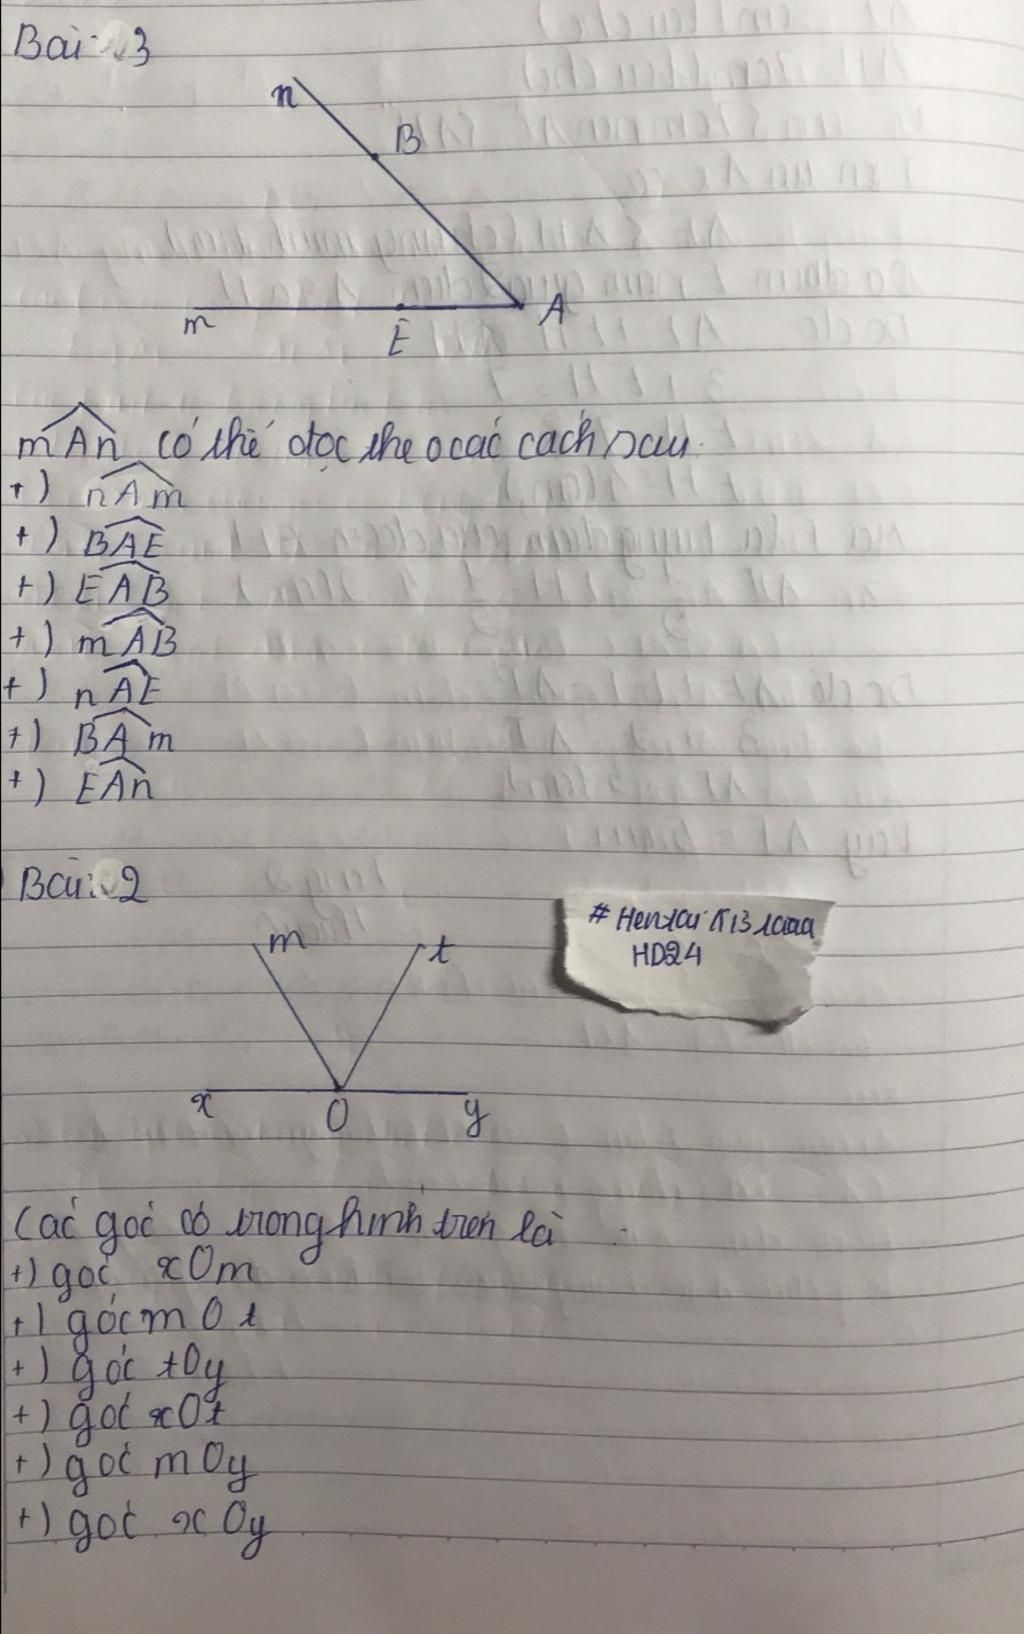 Bài 3
n
B
m
E
A
mAn có thể đọc theo các cách sau:
+) nAm
+) BAE
+) EAB
+) mAB
+) nAE
+) BAm
+) EAn
Bài 2
m
t
x
O
y
HD24
Các góc có trong hình trên là
+) góc xOm
+) góc mOt
+) góc tOy
+) góc xOt
+) góc mOy
+) góc xOy